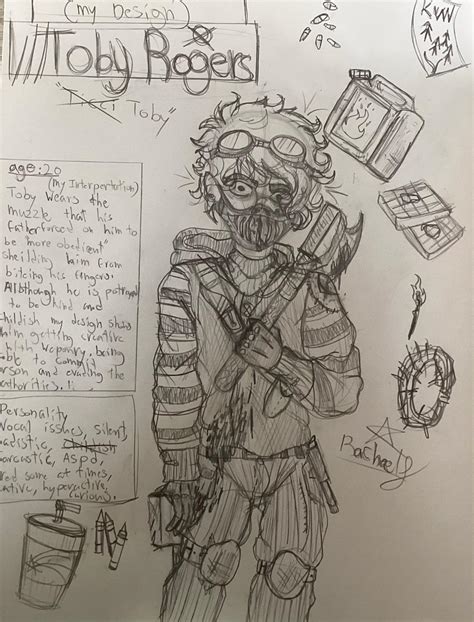 (my Design)
Toby Rogers
"Toby"
age: 20
(my Interpertation)
Toby Wears the
muzzle that his
father forced on him to
be "more obedient"
sheilding him from
biteing his fingers.
Allthough he is potrayed
to be kind and
childish my design shows
him getting creative
with weponry, being
able to commit
arson and evading the
authorities.
Personality
Vocal issues, silent,
sadistic,
sarcastic, Aspd,
at times,
creative, hyperactive,
curious.
Rachael